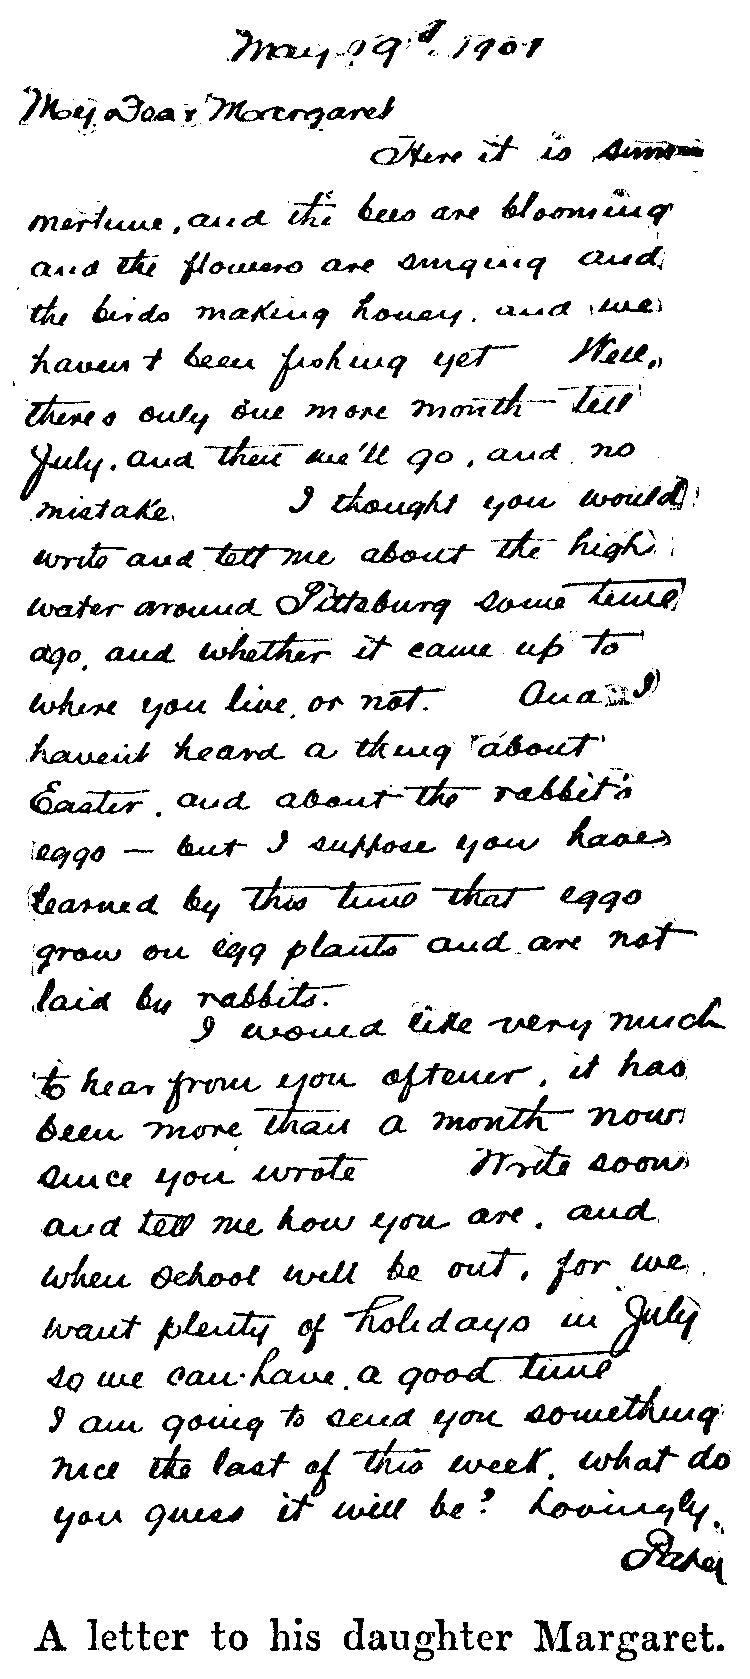 May 19th 1901
My Dear Margaret
Here it is sum-
mertime, and the bees are blooming
and the flowers are singing and
the birds making honey, and we
haven't been fishing yet Well,
there's only one more month till
July, and then we'll go, and no
mistake. I thought you would
write and tell me about the high
water around Pittsburg some time
ago, and whether it came up to
where you live, or not. And I
haven't heard a thing about
Easter, and about the rabbit's
eggs — but I suppose you have
learned by this time that eggs
grow on egg plants and are not
laid by rabbits.
I would like very much
to hear from you oftener, it has
been more than a month now
since you wrote Write soon
and tell me how you are, and
when school will be out, for we
want plenty of holidays in July
so we can have a good time
I am going to send you something
nice the last of this week. What do
you guess it will be? Lovingly,
Papa
A letter to his daughter Margaret.